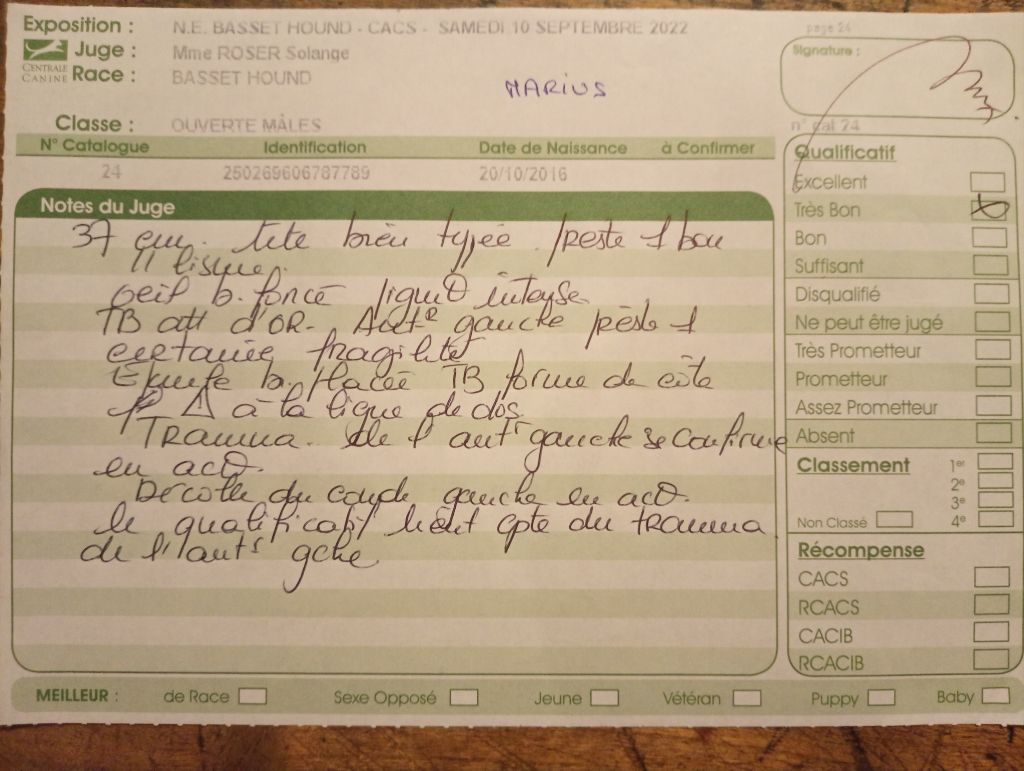 Exposition : N.E. BASSET HOUND - CACS - SAMEDI 10 SEPTEMBRE 2022
page 24
CENTRALE CANINE
Juge : Mme ROSER Solange
Race : BASSET HOUND
MARIUS
Signature :
Classe : OUVERTE MÂLES
n° cat 24
N° Catalogue Identification Date de Naissance à Confirmer
24 250269606787789 20/10/2016
Notes du Juge
37 cm. tête bien typée reste 1 bon
oeil b. foncé
TB att d'OR. Ant gauche reste 1
certaine fragilité
b. placée TB forme de côte
à la ligne de dos
Trauma. de l'ant gauche se confirme
en act
Décolle du coude gauche en act.
le qualificatif tient cpte du trauma
de l'ant gche
Qualificatif
Excellent
Très Bon
Bon
Suffisant
Disqualifié
Ne peut être jugé
Très Prometteur
Prometteur
Assez Prometteur
Absent
Classement 1er
2e
3e
Non Classé 4e
Récompense
CACS
RCACS
CACIB
RCACIB
MEILLEUR : de Race Sexe Opposé Jeune Vétéran Puppy Baby